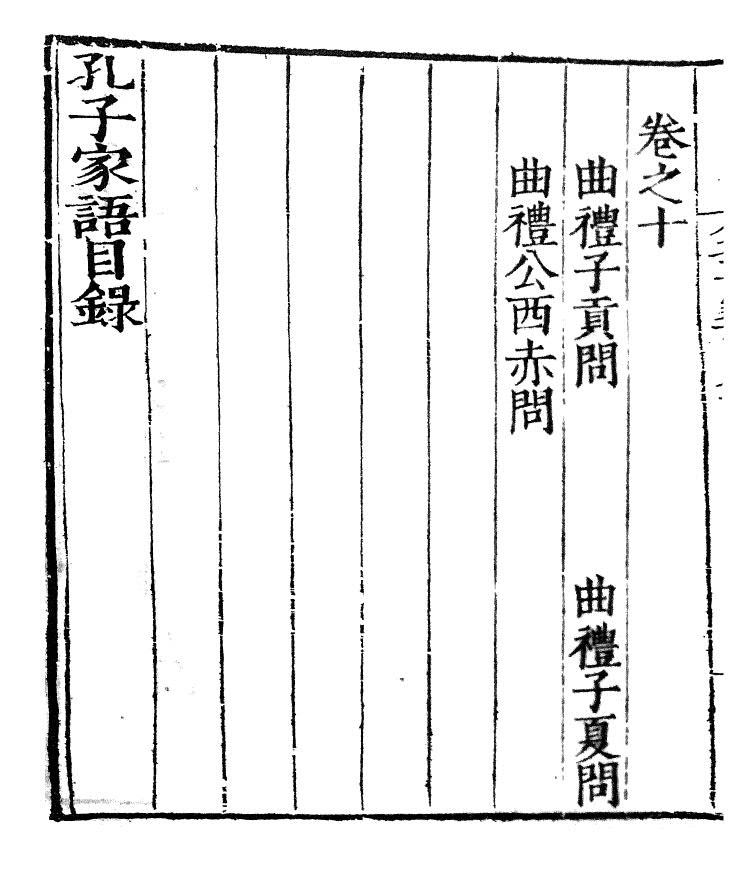 卷之十
曲禮子貢問 曲禮子夏問
曲禮公西赤問
孔子家語目錄